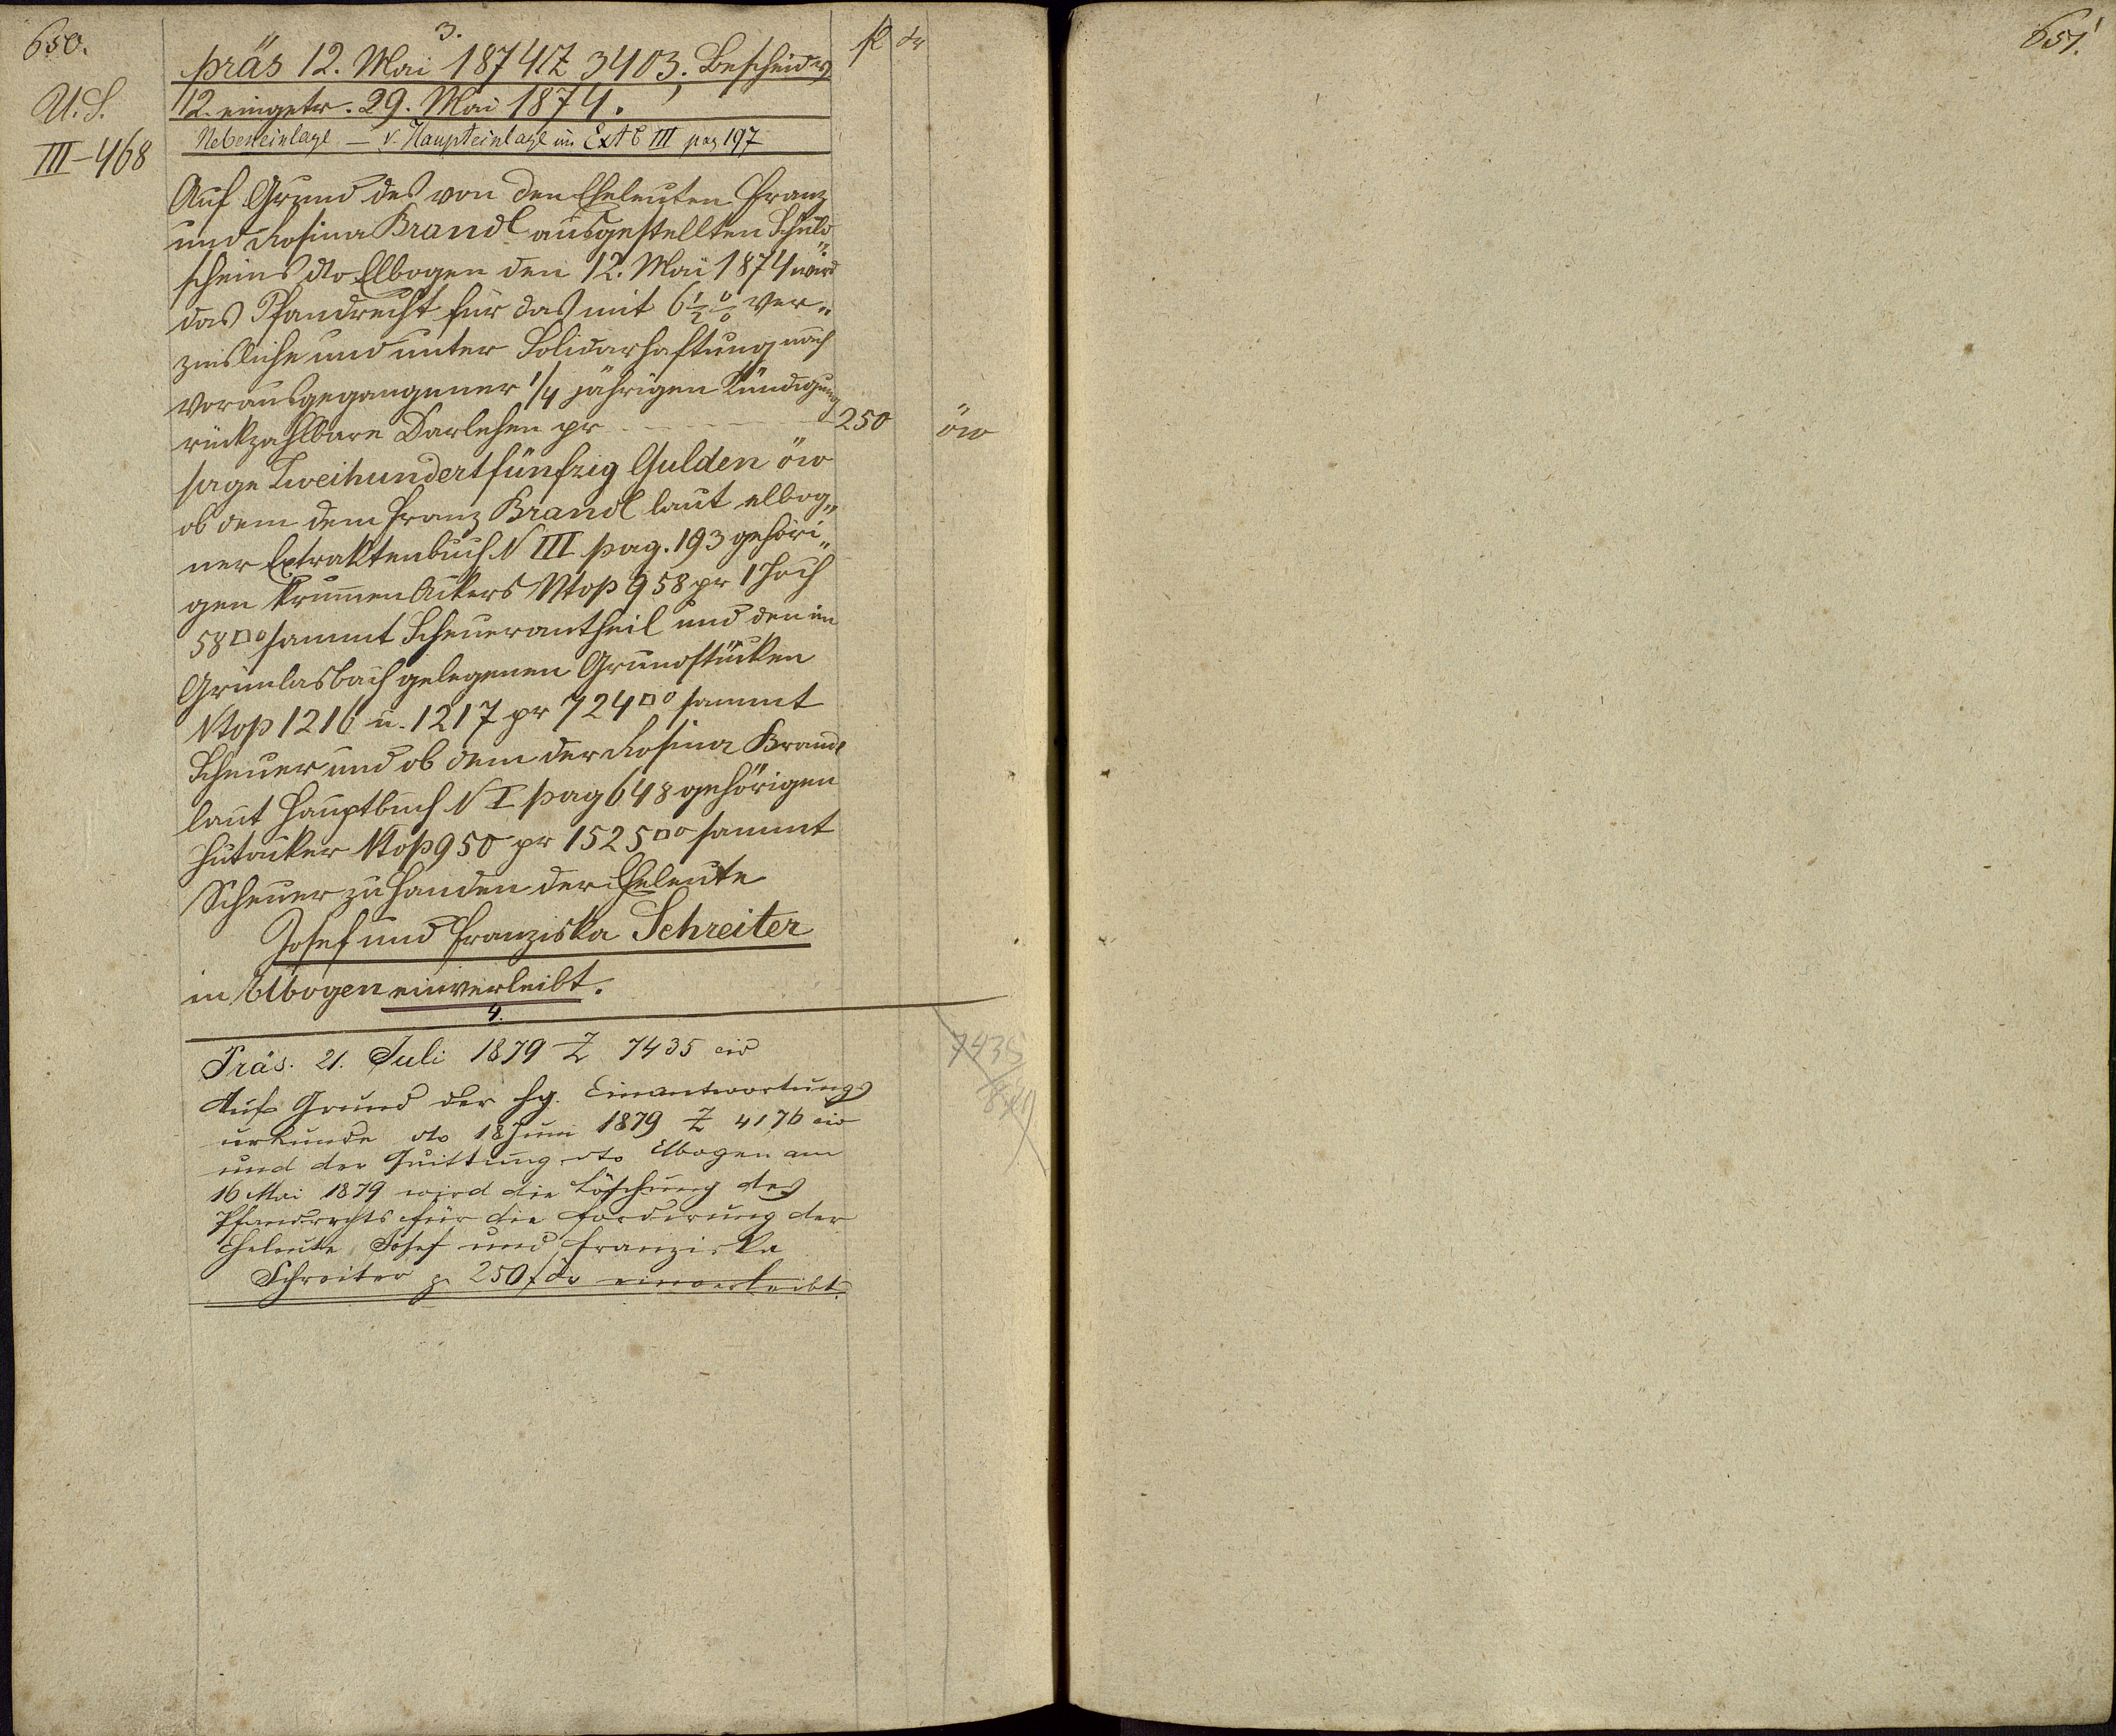 650.
U.S.
III-468
3.
fl kr
präs 12. Mai 1874 Z 3403. Bescheid v
12. eingetr. 29. Mai 1874.
Nebeneinlage — v. Haupteinlage im Ext B III pag 197
Auf Grund des von den Eheleuten Franz
und Rosina Brandl ausgestellten Schuld„
scheins dto Elbogen den 12. Mai 1874 wird
das Pfandrecht für das mit 6½ % ver„
zinsliche und unter Solidarhaftung nach
vorausgegangener 1/4 jährigen Kündigung
rückzahlbare Darlehen pr - - - - 250 öw
sage Zweihundertfünfzig Gulden öw
ob dem dem Franz Brandl laut elbog„
ner Extraktenbuch N III pag. 193 gehöri„
gen krummen Ackers Ntop 958 pr 1 Joch
58□° sammt Scheuerantheil und den in
Grünlasbach gelegenen Grundstücken
Ntop 1216 u. 1217 pr 724□° sammt
Scheuer und ob dem der Rosina Brandl
laut Hauptbuch N I pag 648 gehörigen
Hutacker Ntop 950 pr 1525□° sammt
Scheuer zu Handen der Eheleute
Josef und Franziska Schreiter
in Elbogen einverleibt.
4.
Präs. 21. Juli 1879 Z 7435 civ
7435
879
Auf Grund der hg. Einantwortungs
urkunde dto 18 Juni 1879 Z 4176 civ
und der Quittung dto Elbogen am
16 Mai 1879 wird die Löschung des
Pfandrechts für die Forderung der
Eheleute Josef und Franziska
Schreiter p 250 f öw einverleibt.
651.